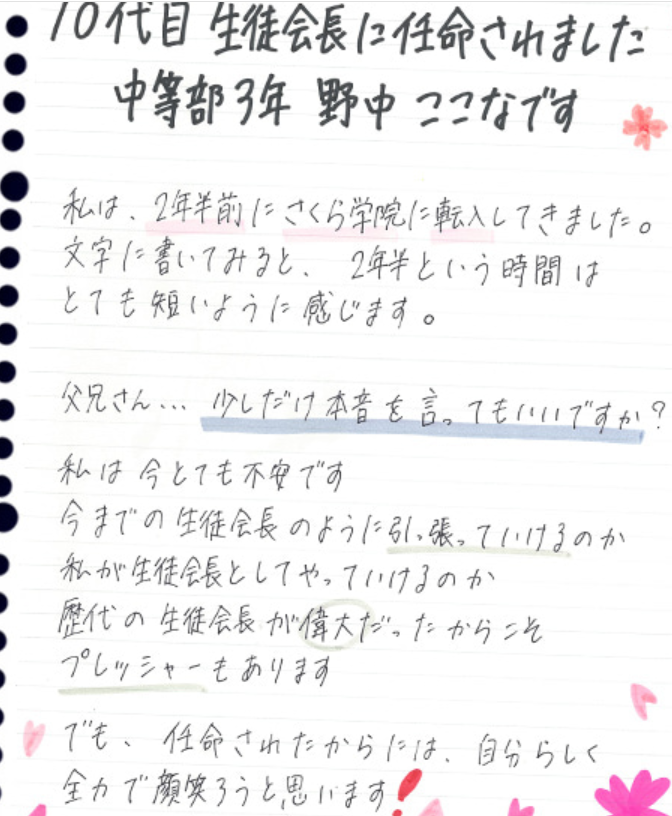 10代目 生徒会長に任命されました
中等部3年 野中 ここなです
私は、2年半前にさくら学院に転入してきました。
文字に書いてみると、2年半という時間は
とても短いように感じます。
父兄さん... 少しだけ本音を言ってもいいですか?
私は今とても不安です
今までの生徒会長のように引っ張っていけるのか
私が生徒会長としてやっていけるのか
歴代の生徒会長が偉大だったからこそ
プレッシャーもあります
でも、任命されたからには、自分らしく
全力で顔笑ろうと思います!